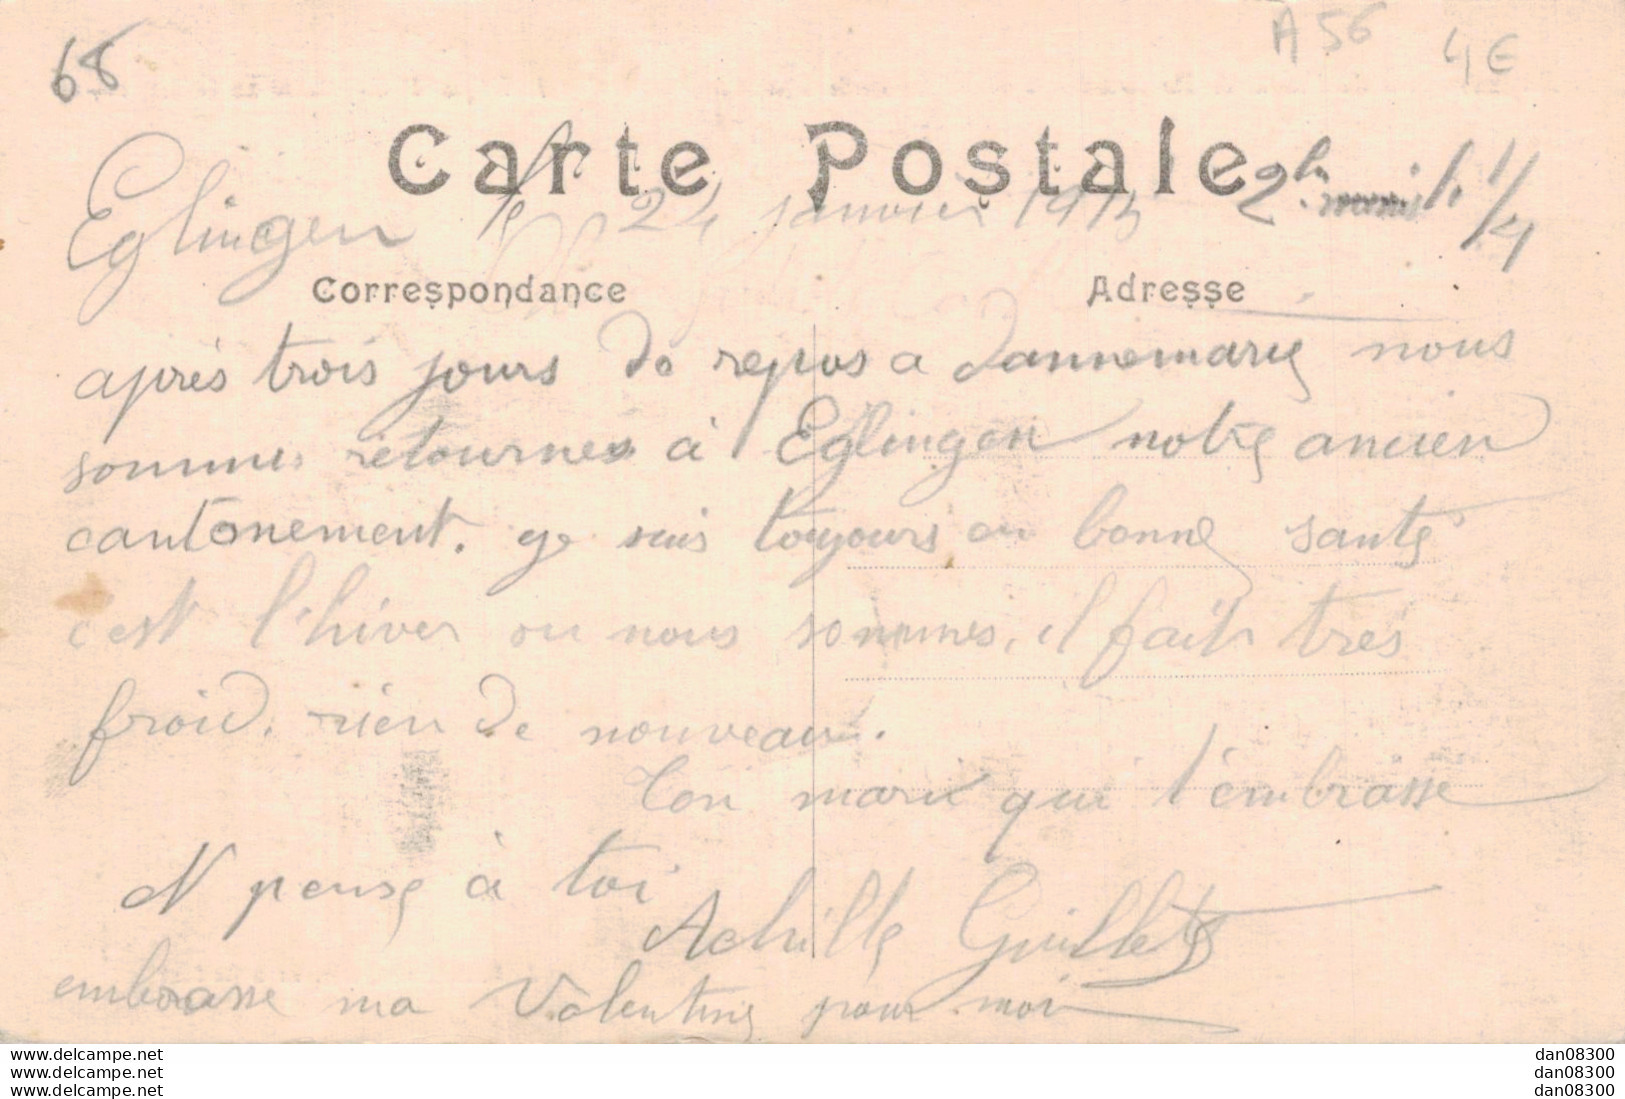 68
A 56 4 €
Carte Postale
Eglingen le 24 janvier 1915 2h 1/4
Correspondance Adresse
après trois jours de repos a Dannemarie nous
sommes retournes à Eglingen notre ancien
cantonement. ge suis toujours en bonne santé
c'est l'hiver ou nous sommes, il fait très
froid. rien de nouveau.
Ton mari qui t'embrasse
N pense à toi
Achille Guillet
embrasse ma Valentine pour moi
www.delcampe.net
www.delcampe.net
www.delcampe.net
dan08300
dan08300
dan08300